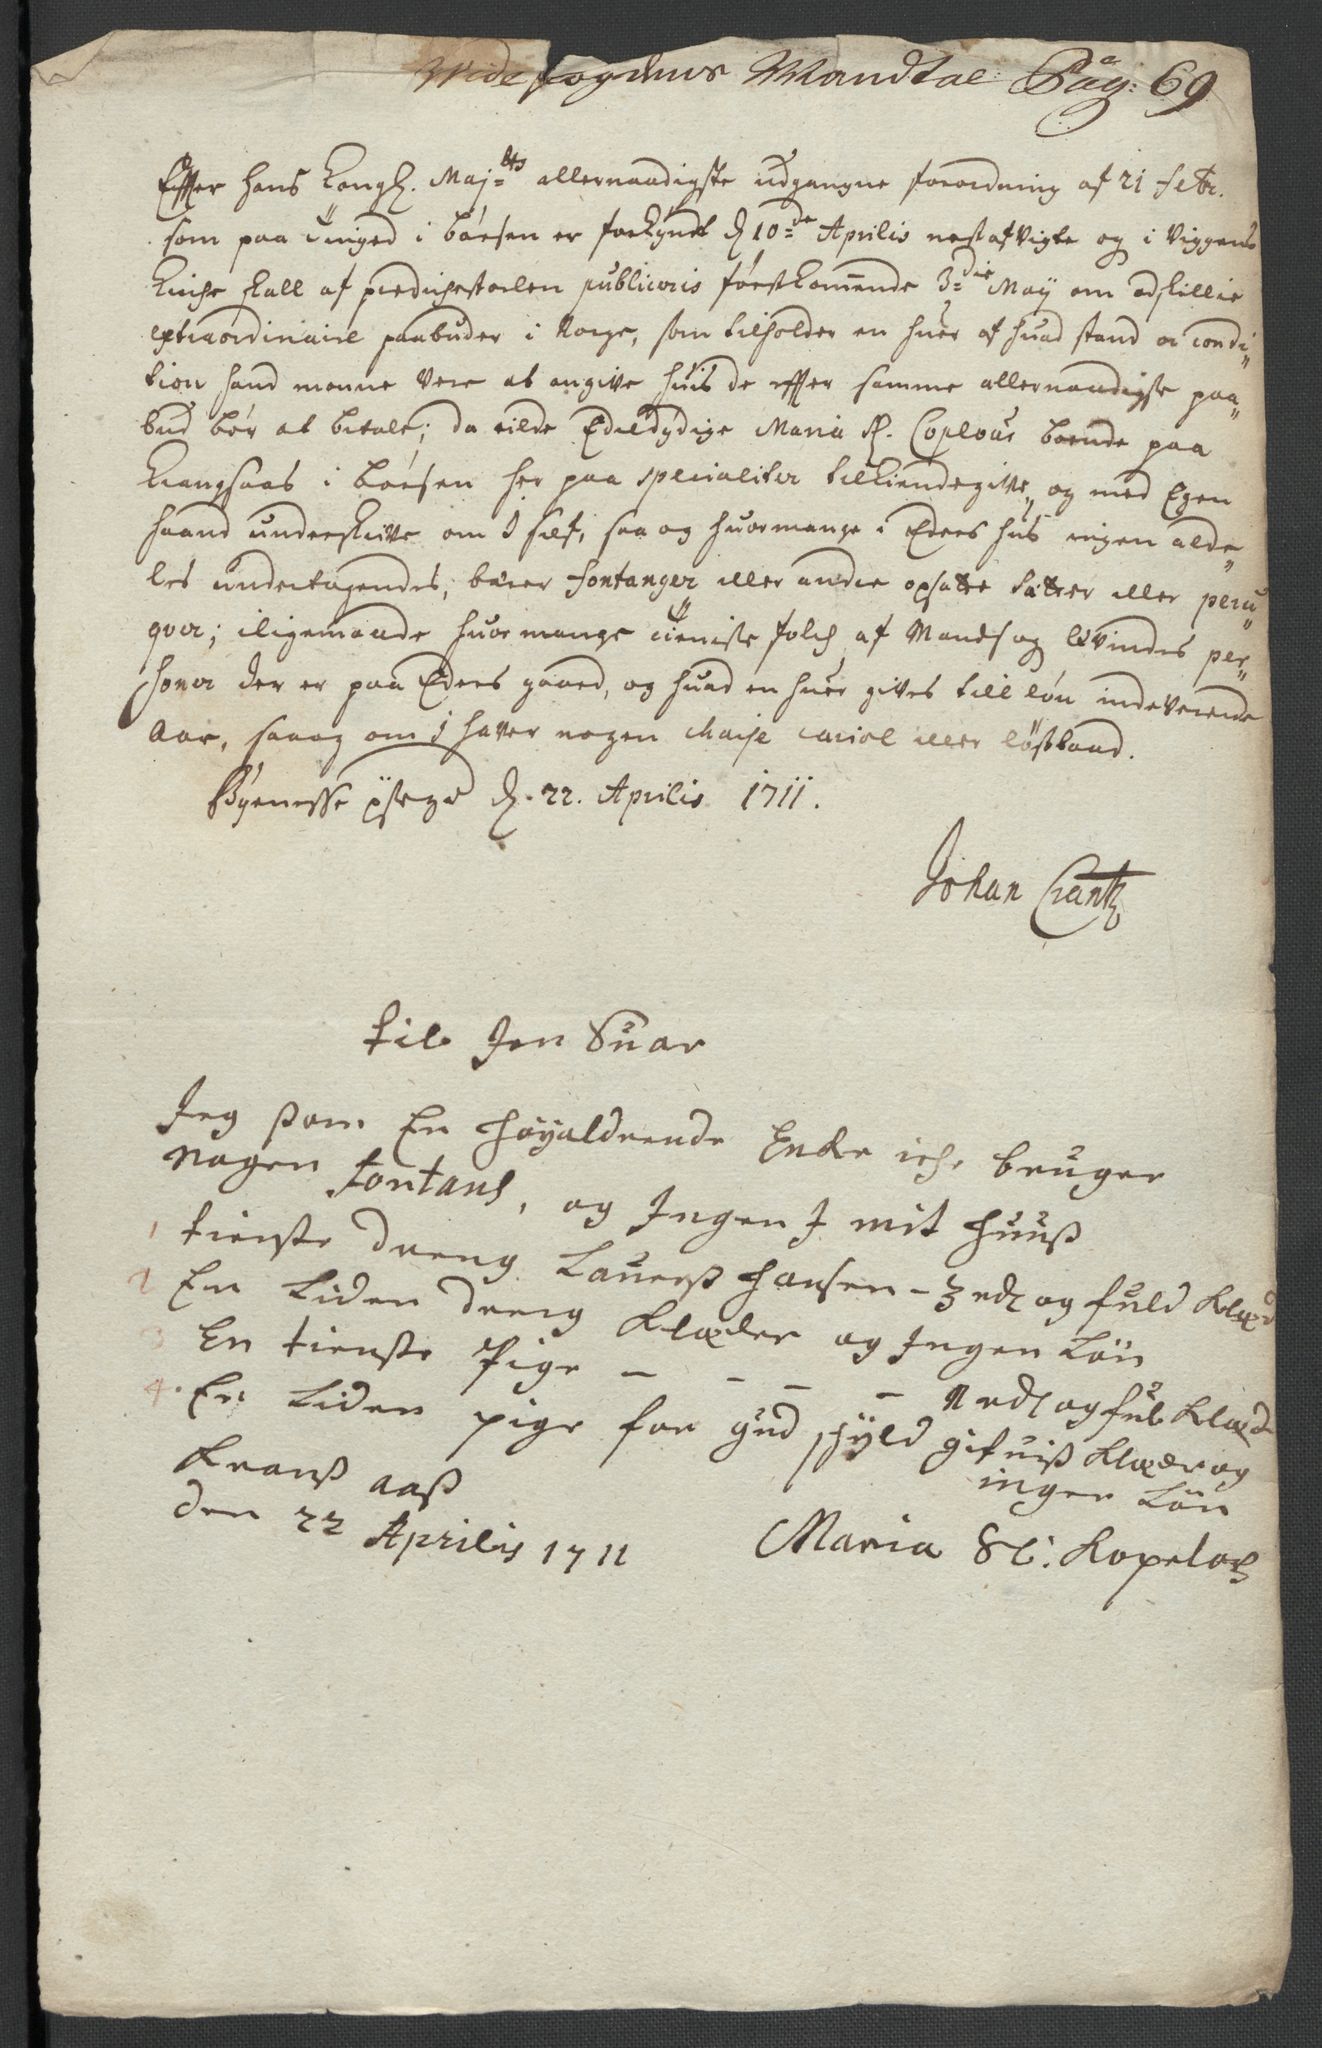 Wide fogdens Mandtal Pag: 69
Effter hans Kongl. Maj=ts allernaadigste udgangne forordning af 21 Febr.
som paa tinged i börsen er forkyndt d 10=de Aprilis nest afvigte og i Viggens
Kirche skall af predichestoelen publiceris förstkommende 3=die Maÿ om adskillie
extraordinaire paabuder i Norge, som tilholder en huer af huad stand oc condi„
tion hand monne vere at angive huis de effter samme allernaadigste paa„
bud bör at betale; da vilde Edeldydige Maria Sl. Coplous boende paa
Krangsaas i börsen her paa specialiter tilkiendegifve, og med Egen
haand underskrifve om I self, saa og huormange i Eders hus ingen alde„
les undertagendes, bærer fontanger eller andre opsatte sætter eller peru„
qver; iligemaade huor mange tieniste folch af Mands og Qvindes per„
soner der er paa Eders gaard, og huad en huer gives till lön indeverende
Aar, saa og om I haver nogen Chaise cariol eller
Bÿenesse d. 22. Aprilis 1711.
Johan Crantz
til Jen Suar
Jeg som En höÿaldrende Enke iche bruger
nogen fontans, og Ingen I mit huuß
1 tienste dreng Lauerß hansen - 3 rdl og fuld klæd
2 En Liden dreng klæder og Ingen Lön
3 En tienste Pige - - - - rdl og ful klæde
4. En Liden pige for gud skÿld gifuiß klæder og
ingen Lön
Kranß aaß
den 22 Aprilis 1711
Maria Sl: Kopelous